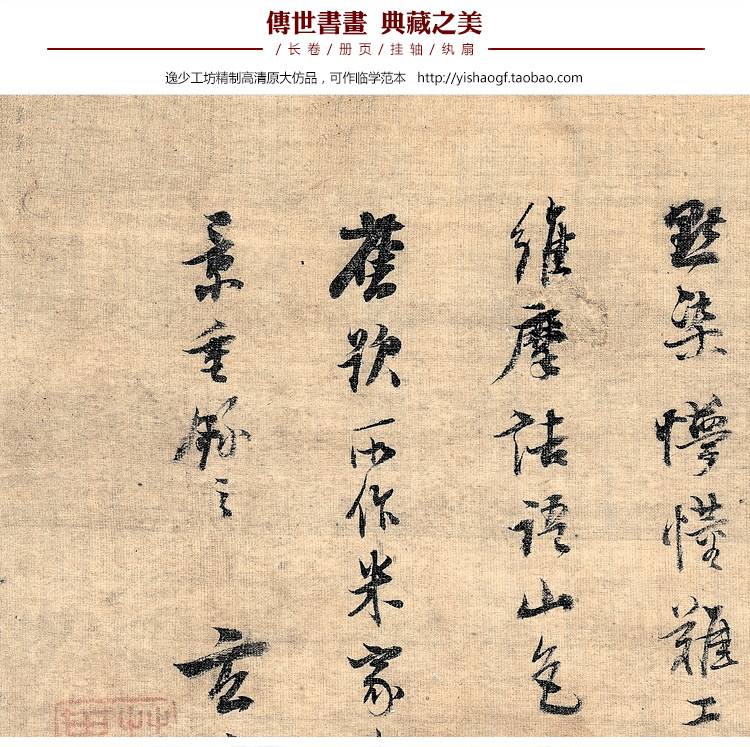 傳世書畫 典藏之美
/ 长卷 / 册页 / 挂轴 / 纨扇
逸少工坊精制高清原大仿品，可作临学范本 http://yishaogf.taobao.com
點染懵懂難工
維摩詰語山色
舊歌而作米家
景重錄之
玄